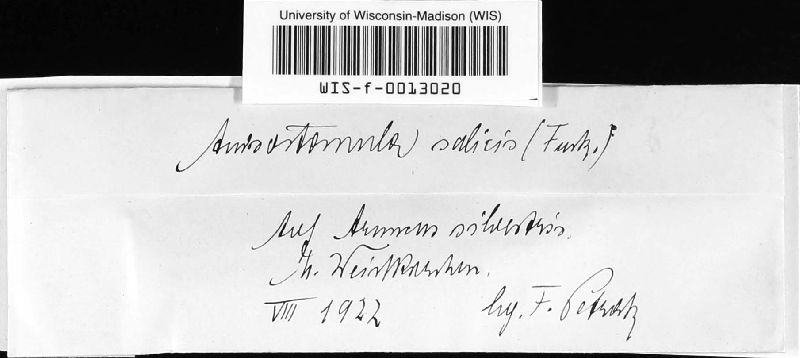 University of Wisconsin-Madison (WIS)
WIS-f-0013020
Anisostomula salicis (Fuck.)
Auf Aruncus silvestris.
M. Weisskirchen.
VIII 1922 leg. F. Petrak